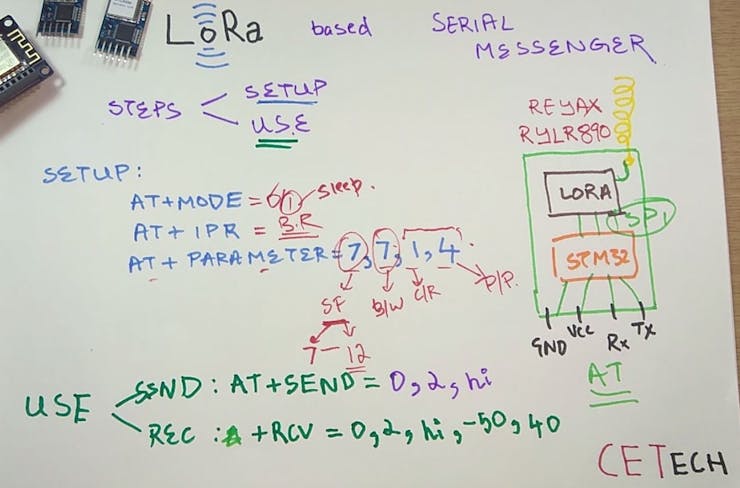 LoRa based SERIAL MESSENGER
STEPS
SETUP
USE
REYAX
RYLR890
LORA
SPI
STM32
GND Vcc Rx Tx
AT
SETUP:
AT+MODE = 0/1 sleep.
AT+IPR = B.R
AT+PARAMETER=7,7,1,4
SF B/W C/R P/P.
7-12
USE
SEND: AT+SEND = 0,2,hi
REC: +RCV = 0,2,hi,-50,40
CETECH